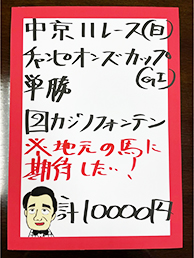 中京11レース(日)
チャンピオンズカップ
(GI)
単勝
2カジノフォンテン
※地元の馬に
期待した…!
計10000円